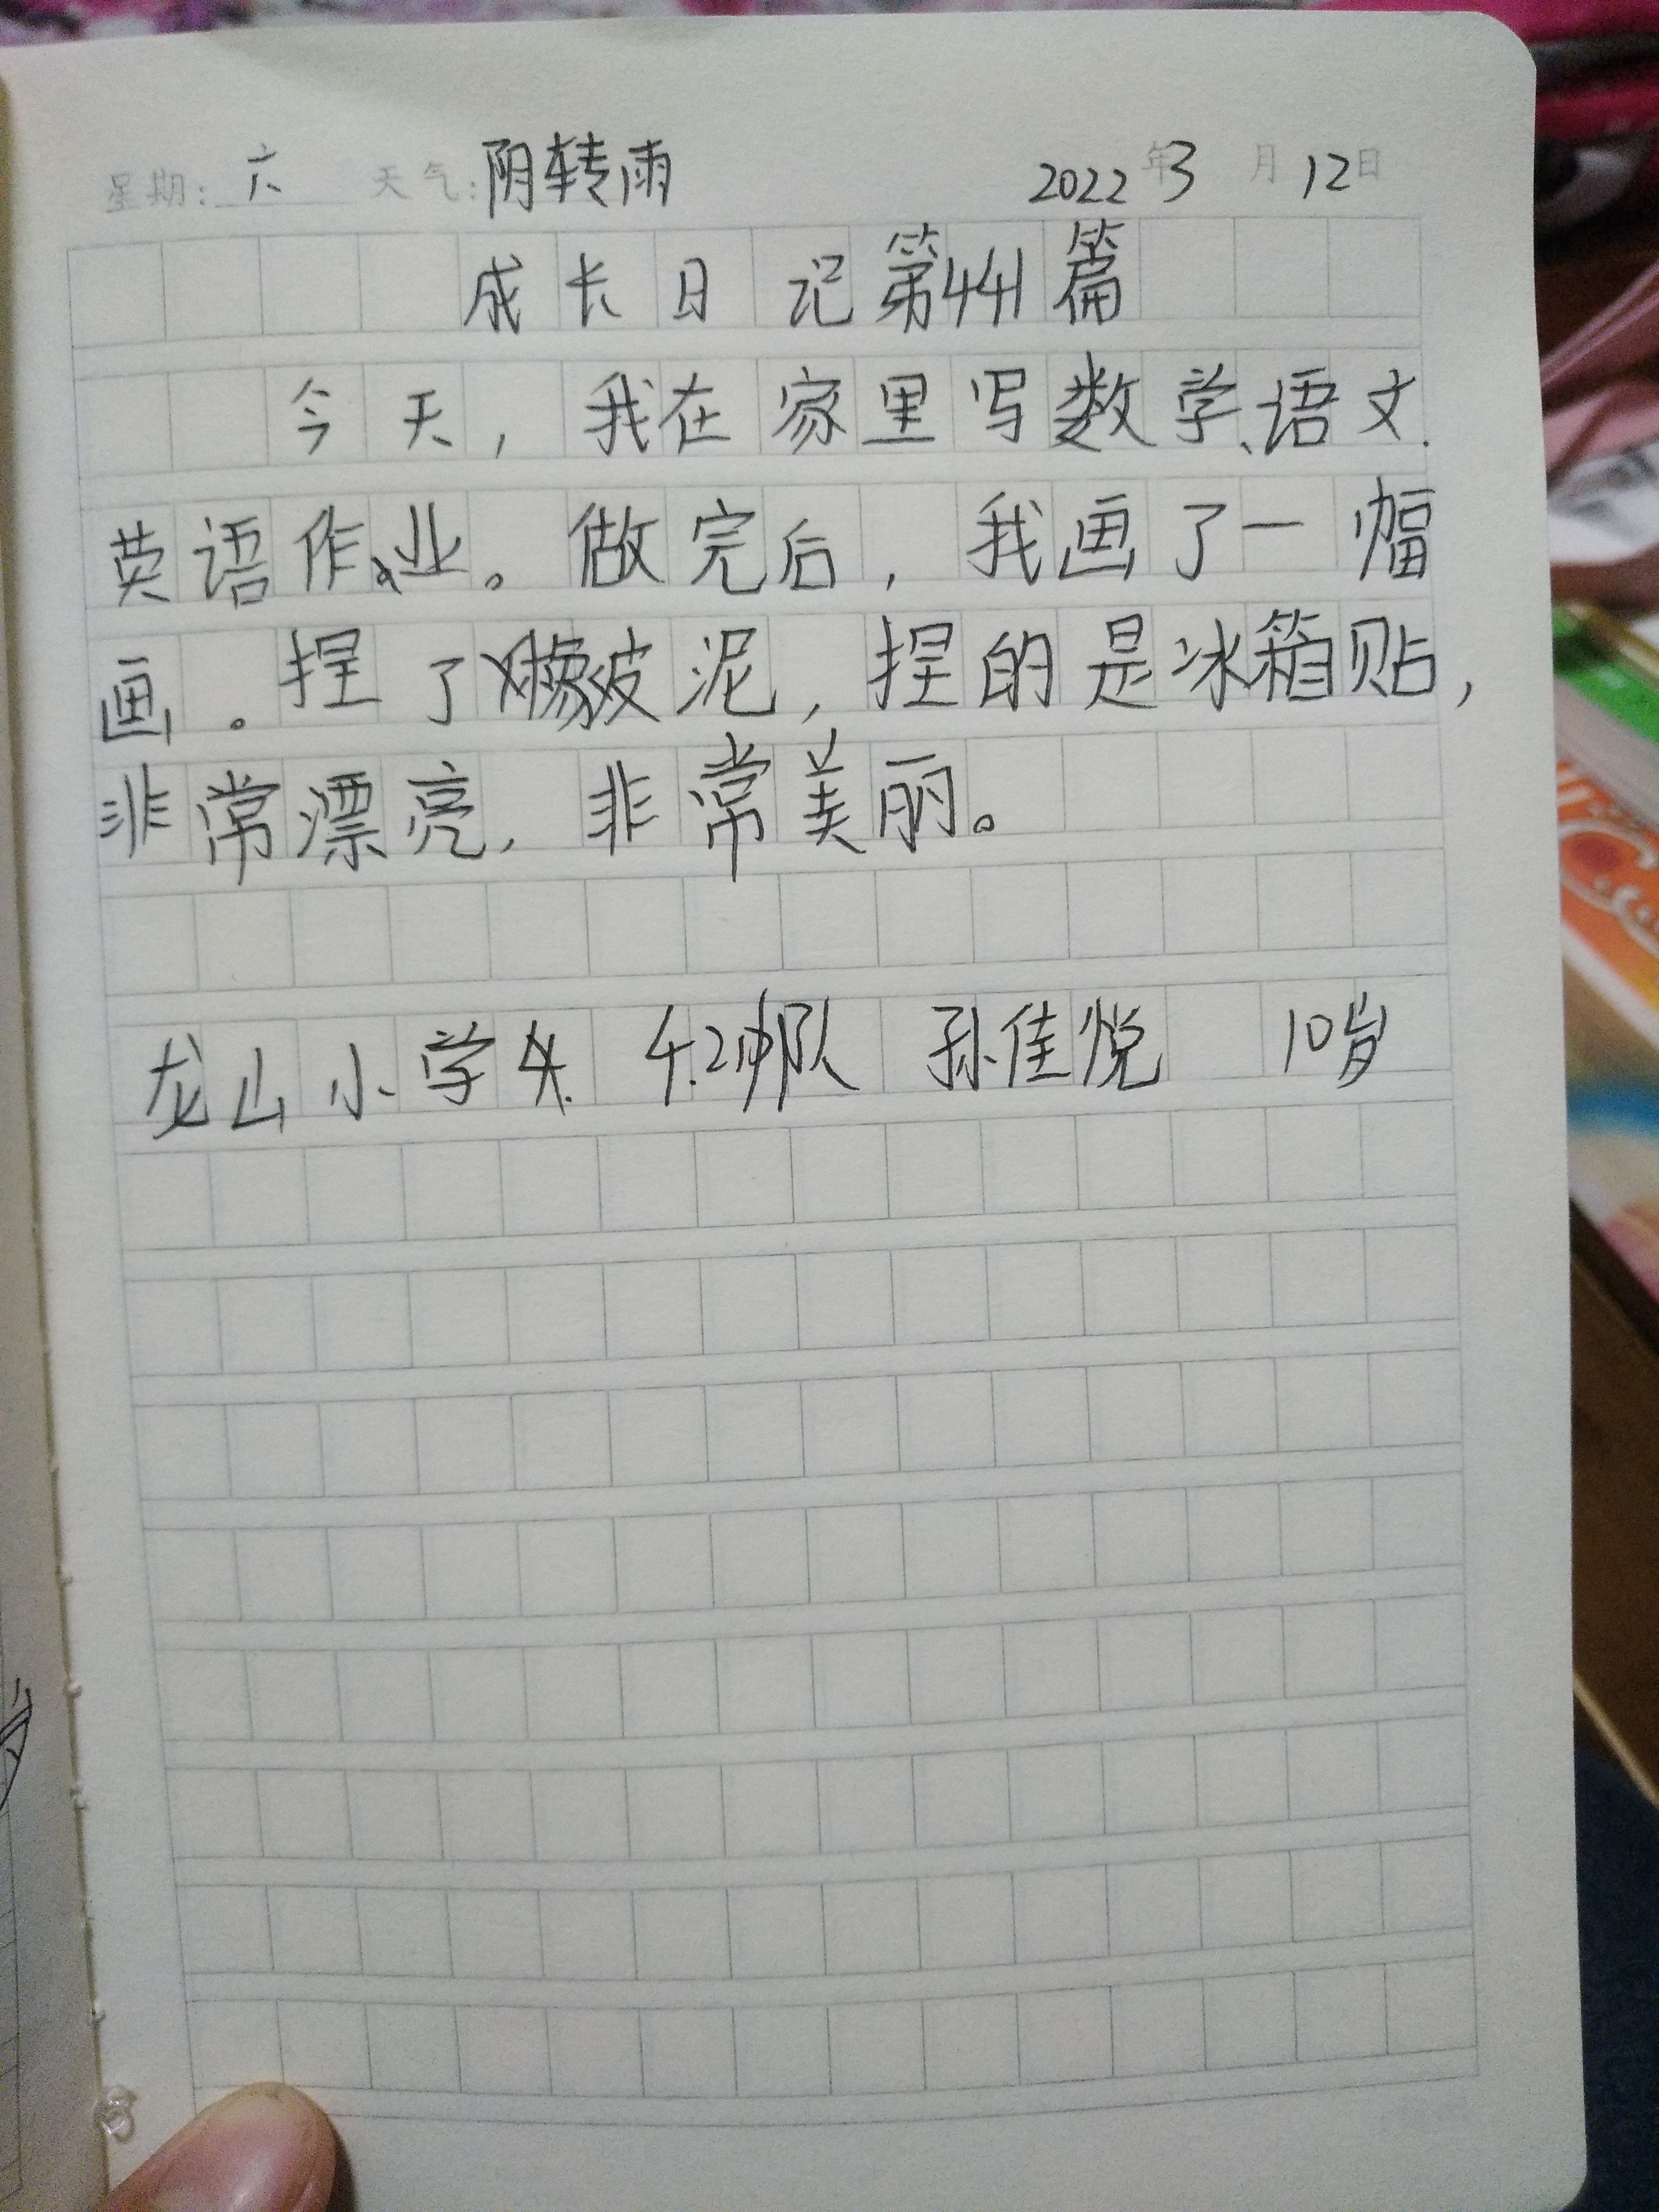 星期：六 天气：阴转雨 2022年3月12日
成长日记第441篇
今天，我在家里写数学、语文、
英语作业。做完后，我画了一幅
画。捏了橡皮泥，捏的是冰箱贴，
非常漂亮，非常美丽。
龙山小学 4.2中队 孙佳悦 10岁